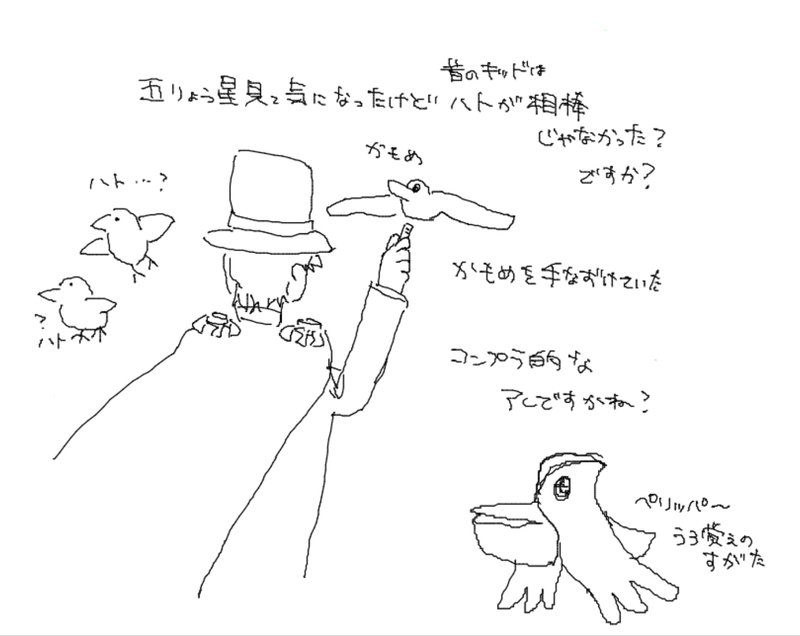 五りょう星見て気になったけど
昔のキッドは
ハトが相棒
じゃなかった?
ですか?
かもめ
ハト…?
?
ハト
かもめを手なずけていた
コンプラ的な
アレですかね〜?
ペリッパ〜
うろ覚えの
すがた